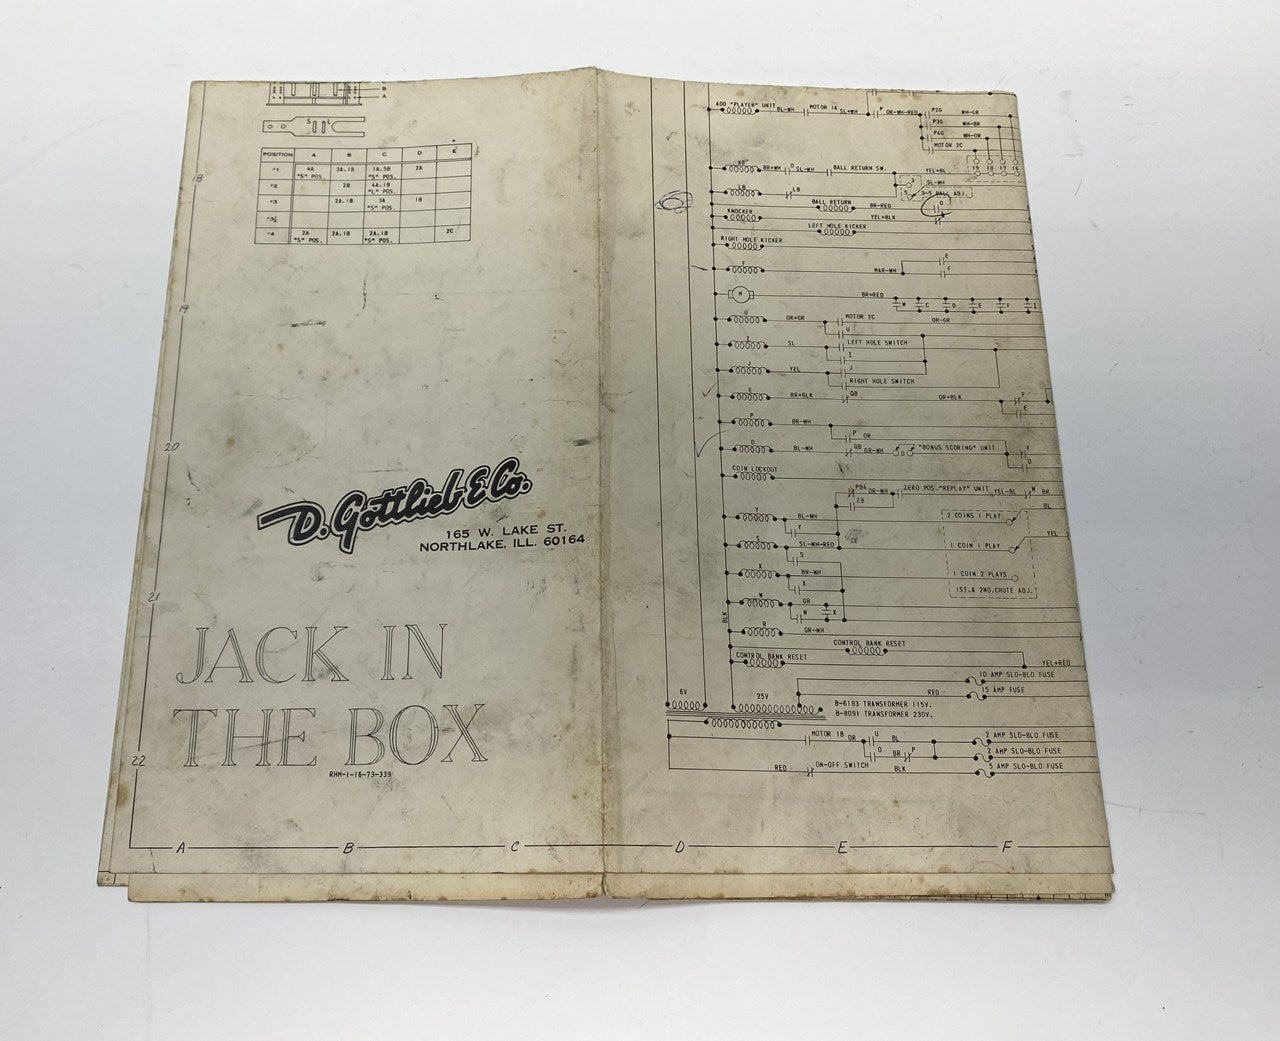 B
A
S L
POSITION A B C D E
#1 4A "S" POS. 2A.1B 1A.5B "S" POS. 2A
#2 2B 4A.1B "L" POS.
#3 2A.1B 3A "S" POS. 1B
#3½
#4 2A "S" POS. 2A.1B 2A.1B "S" POS. 2C
18
19
20
21
22
D. Gottlieb & Co.
165 W. LAKE ST.
NORTHLAKE, ILL. 60164
JACK IN
THE BOX
RHM-1-16-73-339
A B C D E F
ADD "PLAYER" UNIT BL-WH MOTOR 1A SL+WH P OR-WH-RED P2G WH-GR
P3G WH-BR
P4G WH-OR
MOTOR 2C
19 18 17 16
BR+WH O SL-WH BALL RETURN SW. YEL+BL
3 SL-WH
5 3-5 BALL ADJ.
LB LB
BALL RETURN BR-RED O
KNOCKER YEL+BLK
LEFT HOLE KICKER
RIGHT HOLE KICKER
F MAR-WH E
F
M BR+RED W C D E F I
U OR+GR MOTOR 2C OR-GR
U
I SL LEFT HOLE SWITCH
I
J YEL J
RIGHT HOLE SWITCH
E BR+BLK QB OR+BLK F
E
P BR-WH P OR
D BL-WH QB GR-WH O "BONUS SCORING" UNIT F
D
COIN LOCKOUT
PB4 OR-WH ZERO POS."REPLAY" UNIT YEL-BL W BR
ZB
Y BL-WH 2 COINS 1 PLAY BL
Y
S SL-WH-RED SX 1 COIN 1 PLAY YEL
S
X BR-WH 1 COIN 2 PLAYS
X 1ST.& 2ND.CHUTE ADJ.
W GR
W X
BLK
R GR-WH
CONTROL BANK RESET
CONTROL BANK RESET YEL+RED
10 AMP SLO-BLO FUSE
6V 25V RED 15 AMP FUSE
B-6183 TRANSFORMER 115V.
B-8091 TRANSFORMER 230V.
MOTOR 1B OR U BL 2 AMP SLO-BLO FUSE
O BR P 2 AMP SLO-BLO FUSE
RED ON-OFF SWITCH BLK 5 AMP SLO-BLO FUSE